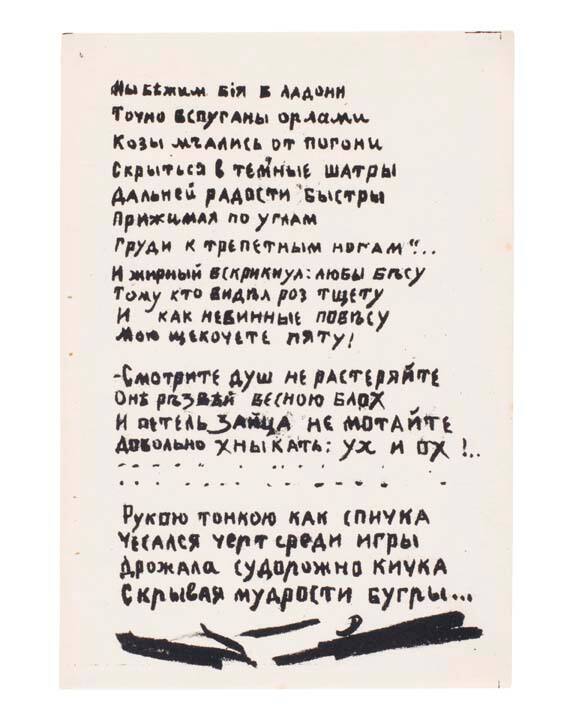 Мы бѣжим бія в ладони
Точно вспуганы орлами
Козы мчались от погони
Скрыться в темные шатры
Дальней радости быстры
Прижимая по углам
Груди к трепетным ногам"..
И жирный вскрикнул: любы бѣсу
Тому кто видѣл роз тщету
И как невинные повѣсу
Мою щекочете пяту!
-Смотрите душ не растеряйте
Онѣ рѣзвѣй весною блох
И петель зайца не мотайте
Довольно хныкать: ух и ох!..
Рукою тонкою как спичка
Чесался черт среди игры
Дрожала судорожно кичка
Скрывая мудрости бугры...